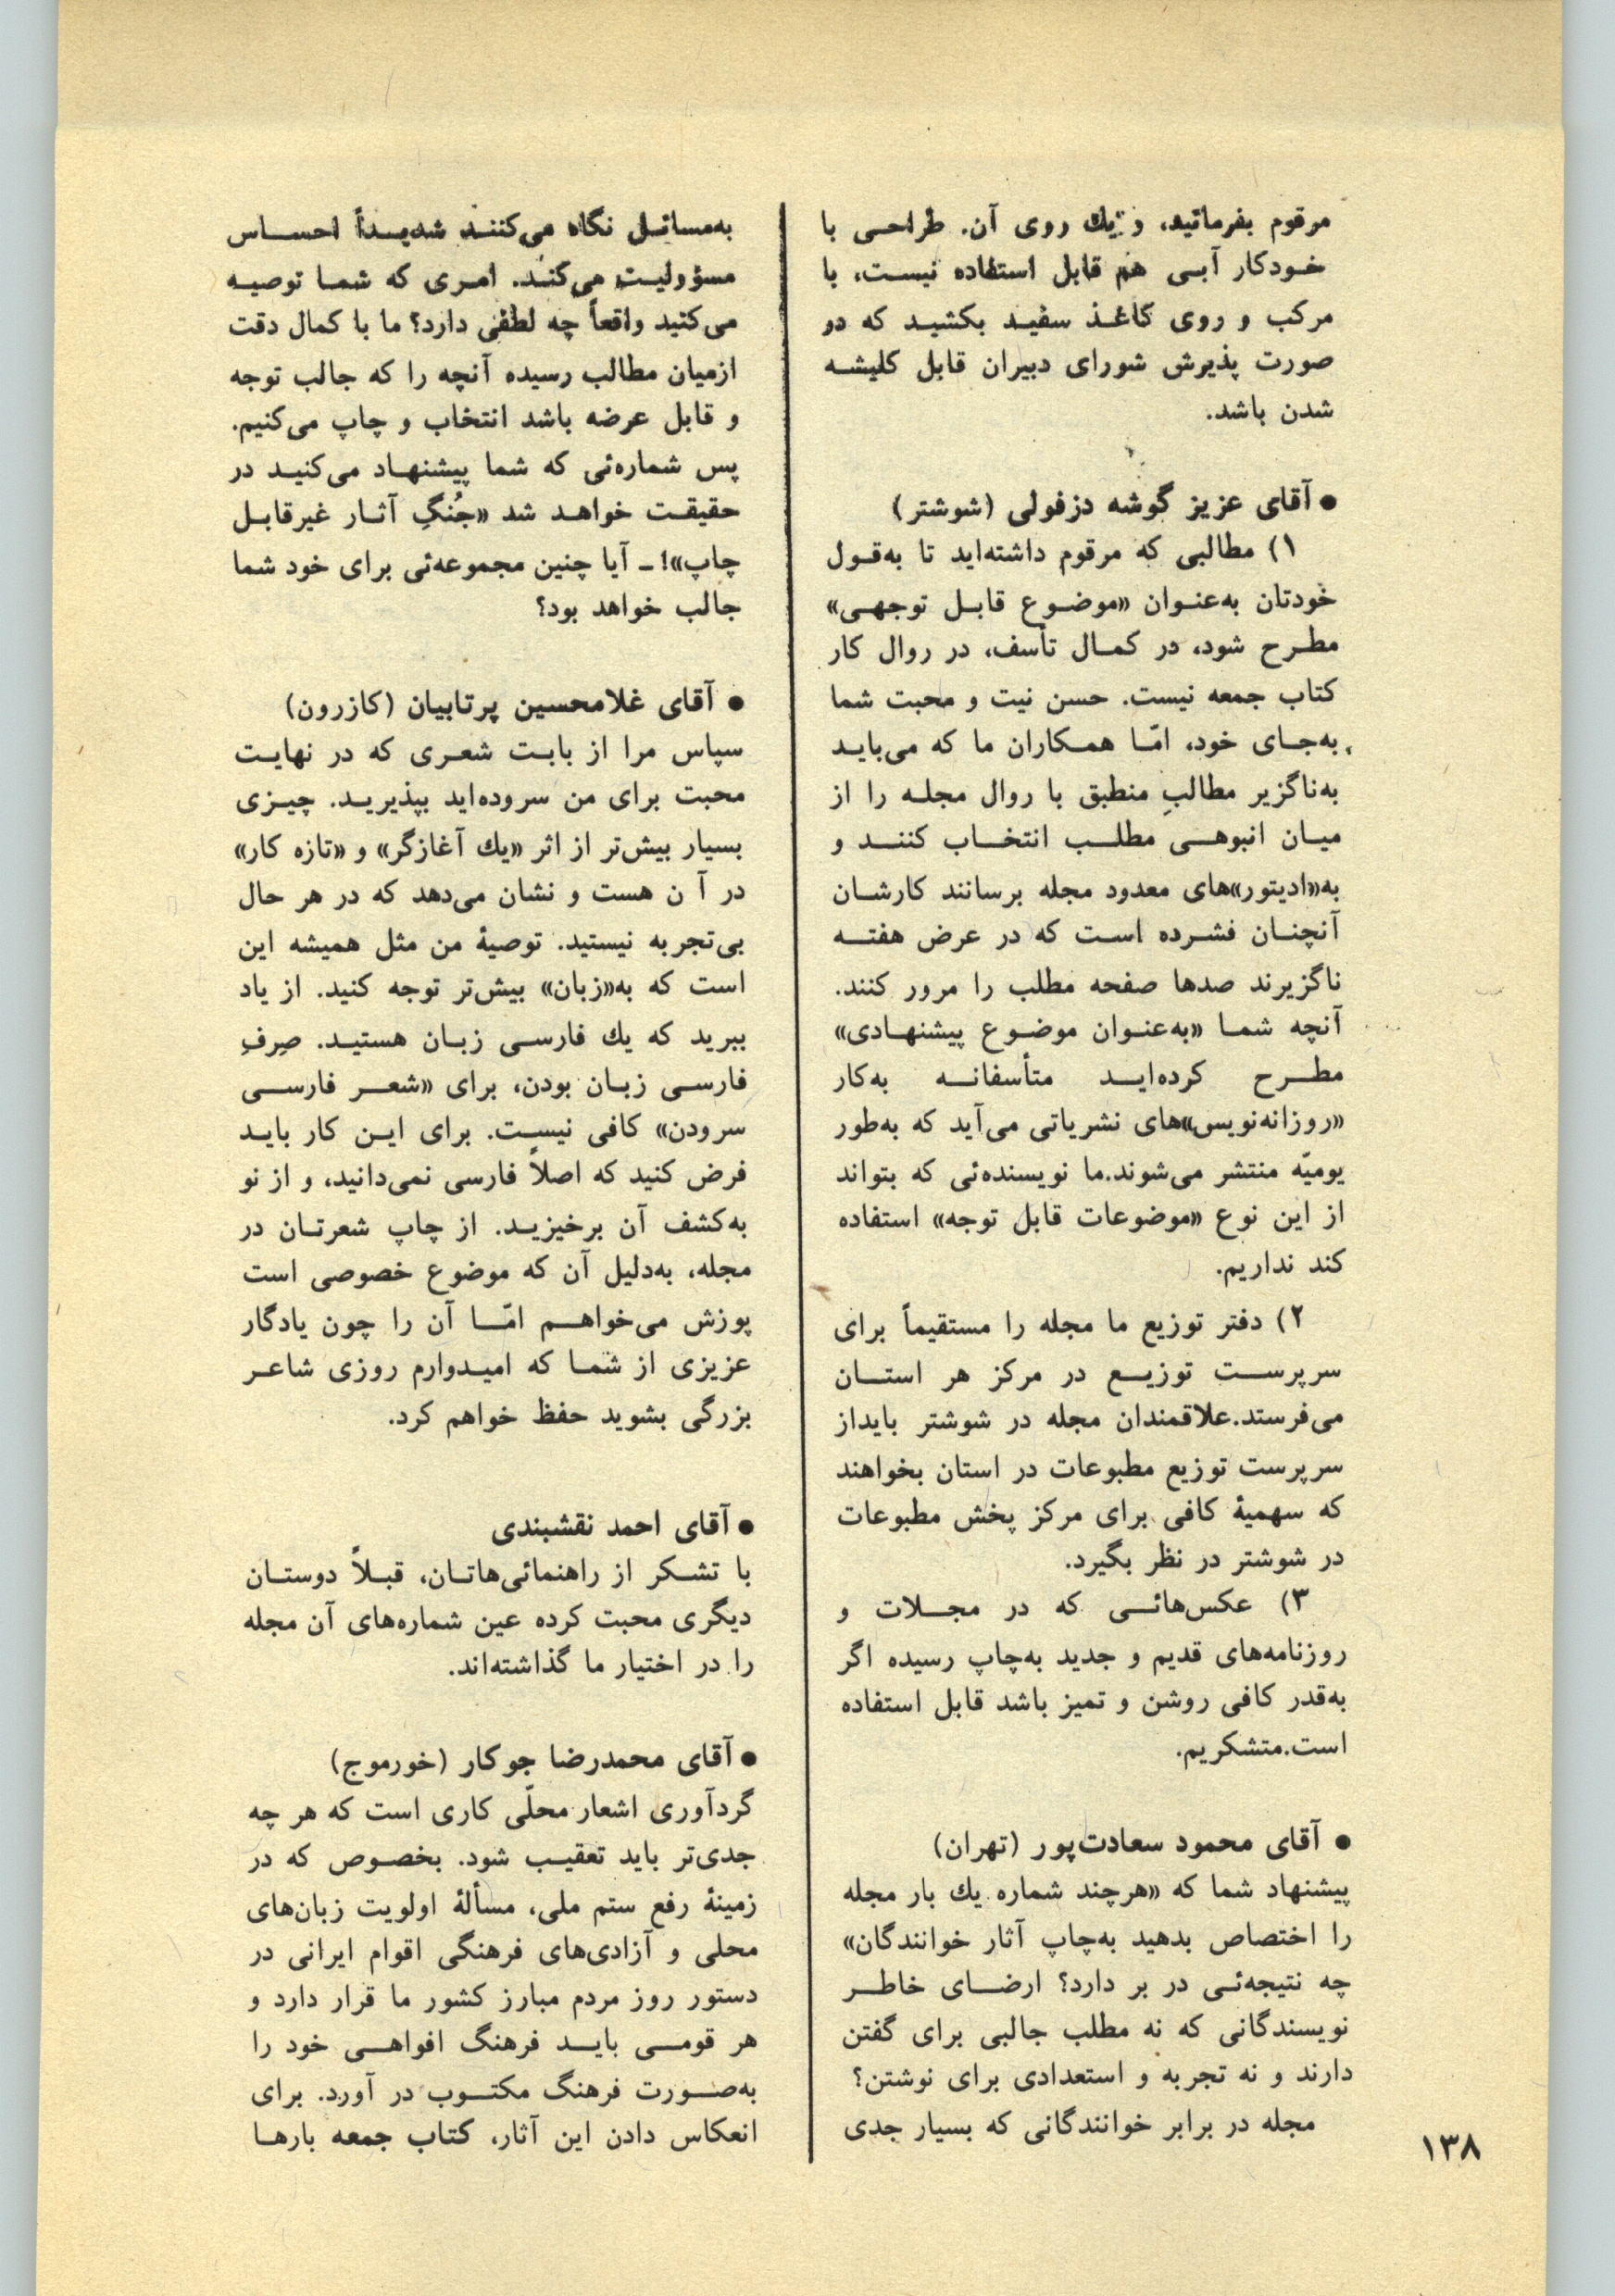 مرقوم بفرمائید، و یك روی آن. طراحی با
خودکار آبی هم قابل استفاده نیست، با
مرکب و روی کاغذ سفید بکشید که در
صورت پذیرش شورای دبیران قابل کلیشه
شدن باشد.
● آقای عزیز گوشه دزفولی (شوشتر)
۱) مطالبی که مرقوم داشته‌اید تا به‌قول
خودتان به‌عنوان «موضوع قابل توجهی»
مطرح شود، در کمال تأسف، در روال کار
کتاب جمعه نیست. حسن نیت و محبت شما
به‌جای خود، امّا همکاران ما که می‌باید
به‌ناگزیر مطالبِ منطبق با روال مجله را از
میان انبوهی مطلب انتخاب کنند و
به«ادیتور»های معدود مجله برسانند کارشان
آنچنان فشرده است که در عرض هفته
ناگزیرند صدها صفحه مطلب را مرور کنند.
آنچه شما «به‌عنوان موضوع پیشنهادی»
مطرح کرده‌اید متأسفانه به‌کار
«روزانه‌نویس»های نشریاتی می‌آید که به‌طور
یومیّه منتشر می‌شوند.ما نویسنده‌ئی که بتواند
از این نوع «موضوعات قابل توجه» استفاده
کند نداریم.
۲) دفتر توزیع ما مجله را مستقیماً برای
سرپرست توزیع در مرکز هر استان
می‌فرستد.علاقمندان مجله در شوشتر بایداز
سرپرست توزیع مطبوعات در استان بخواهند
که سهمیهٔ کافی برای مرکز پخش مطبوعات
در شوشتر در نظر بگیرد.
۳) عکس‌هائی که در مجلات و
روزنامه‌های قدیم و جدید به‌چاپ رسیده اگر
به‌قدر کافی روشن و تمیز باشد قابل استفاده
است.متشکریم.
● آقای محمود سعادت‌پور (تهران)
پیشنهاد شما که «هرچند شماره یك بار مجله
را اختصاص بدهید به‌چاپ آثار خوانندگان»
چه نتیجه‌ئی در بر دارد؟ ارضای خاطر
نویسندگانی که نه مطلب جالبی برای گفتن
دارند و نه تجربه و استعدادی برای نوشتن؟
مجله در برابر خوانندگانی که بسیار جدی
به‌مسائل نگاه می‌کنند شدیداً احساس
مسؤولیت می‌کند. امری که شما توصیه
می‌کنید واقعاً چه لطفی دارد؟ ما با کمال دقت
ازمیان مطالب رسیده آنچه را که جالب توجه
و قابل عرضه باشد انتخاب و چاپ می‌کنیم.
پس شماره‌ئی که شما پیشنهاد می‌کنید در
حقیقت خواهد شد «جُنگِ آثار غیرقابل
چاپ»! ـ آیا چنین مجموعه‌ئی برای خود شما
جالب خواهد بود؟
● آقای غلامحسین پرتابیان (کازرون)
سپاس مرا از بابت شعری که در نهایت
محبت برای من سروده‌اید بپذیرید. چیزی
بسیار بیش‌تر از اثر «یك آغازگر» و «تازه کار»
در آ ن هست و نشان می‌دهد که در هر حال
بی‌تجربه نیستید. توصیهٔ من مثل همیشه این
است که به«زبان» بیش‌تر توجه کنید. از یاد
ببرید که یك فارسی زبان هستید. صِرفِ
فارسی زبان بودن، برای «شعر فارسی
سرودن» کافی نیست. برای این کار باید
فرض کنید که اصلاً فارسی نمی‌دانید، و از نو
به‌کشف آن برخیزید. از چاپ شعرتان در
مجله، به‌دلیل آن که موضوع خصوصی است
پوزش می‌خواهم امّا آن را چون یادگار
عزیزی از شما که امیدوارم روزی شاعر
بزرگی بشوید حفظ خواهم کرد.
● آقای احمد نقشبندی
با تشکر از راهنمائی‌هاتان، قبلاً دوستان
دیگری محبت کرده عین شماره‌های آن مجله
را در اختیار ما گذاشته‌اند.
● آقای محمدرضا جوکار (خورموج)
گردآوری اشعار محلّی کاری است که هر چه
جدی‌تر باید تعقیب شود. بخصوص که در
زمینهٔ رفع ستم ملی، مسألهٔ اولویت زبان‌های
محلی و آزادی‌های فرهنگی اقوام ایرانی در
دستور روز مردم مبارز کشور ما قرار دارد و
هر قومی باید فرهنگ افواهی خود را
به‌صورت فرهنگ مکتوب در آورد. برای
انعکاس دادن این آثار، کتاب جمعه بارها
۱۳۸